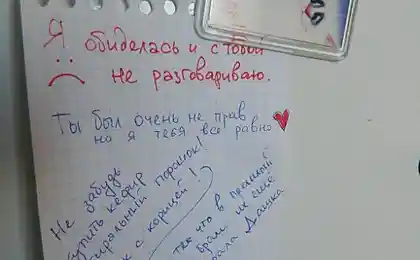 Я обиделась и с тобой
не разговариваю.
Ты был очень не прав
но я тебя все равно
Не забудь
купить кефир
стиральный порошок!
с корицей!
так что в прошлый
брали их еще